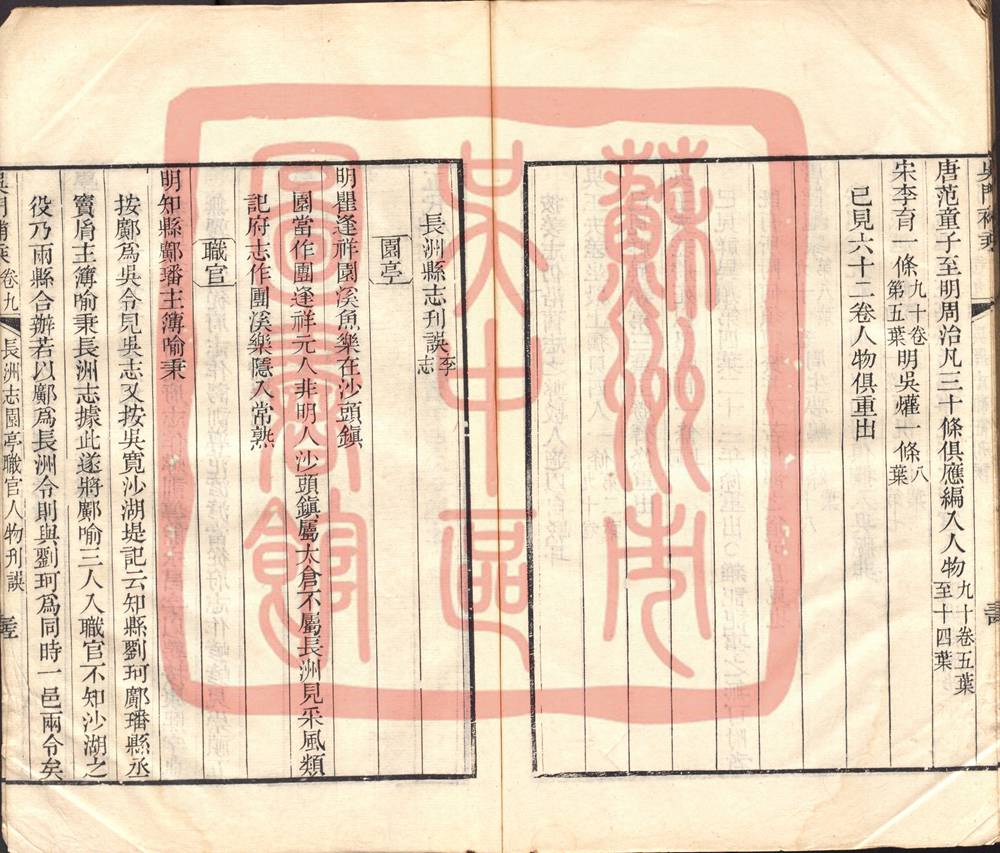 唐范童子至明周治凡三十條俱應編入人物九十卷五葉至十四葉
宋李育一條九十卷第五葉明吳㸑一條八葉
已見六十二卷人物俱重出
長洲縣志刊誤李志
園亭
明瞿逢祥園溪魚樂在沙頭鎮
園當作團逢祥元人非明人沙頭鎮屬太倉不屬長洲見采風類
記府志作團溪樂隱入常熟
職官
明知縣鄺璠主簿喻秉
按鄺為吳令見吳志又按吳寬沙湖堤記云知縣劉珂鄺璠縣丞
竇盾主簿喻秉長洲志據此遂將鄺喻三人入職官不知沙湖之
役乃兩縣合辦若以鄺為長洲令則與劉珂為同時一邑兩令矣
吳門補乘 卷九 長洲志園亭職官人物刊誤
蘇州市
吳中區
圖書館